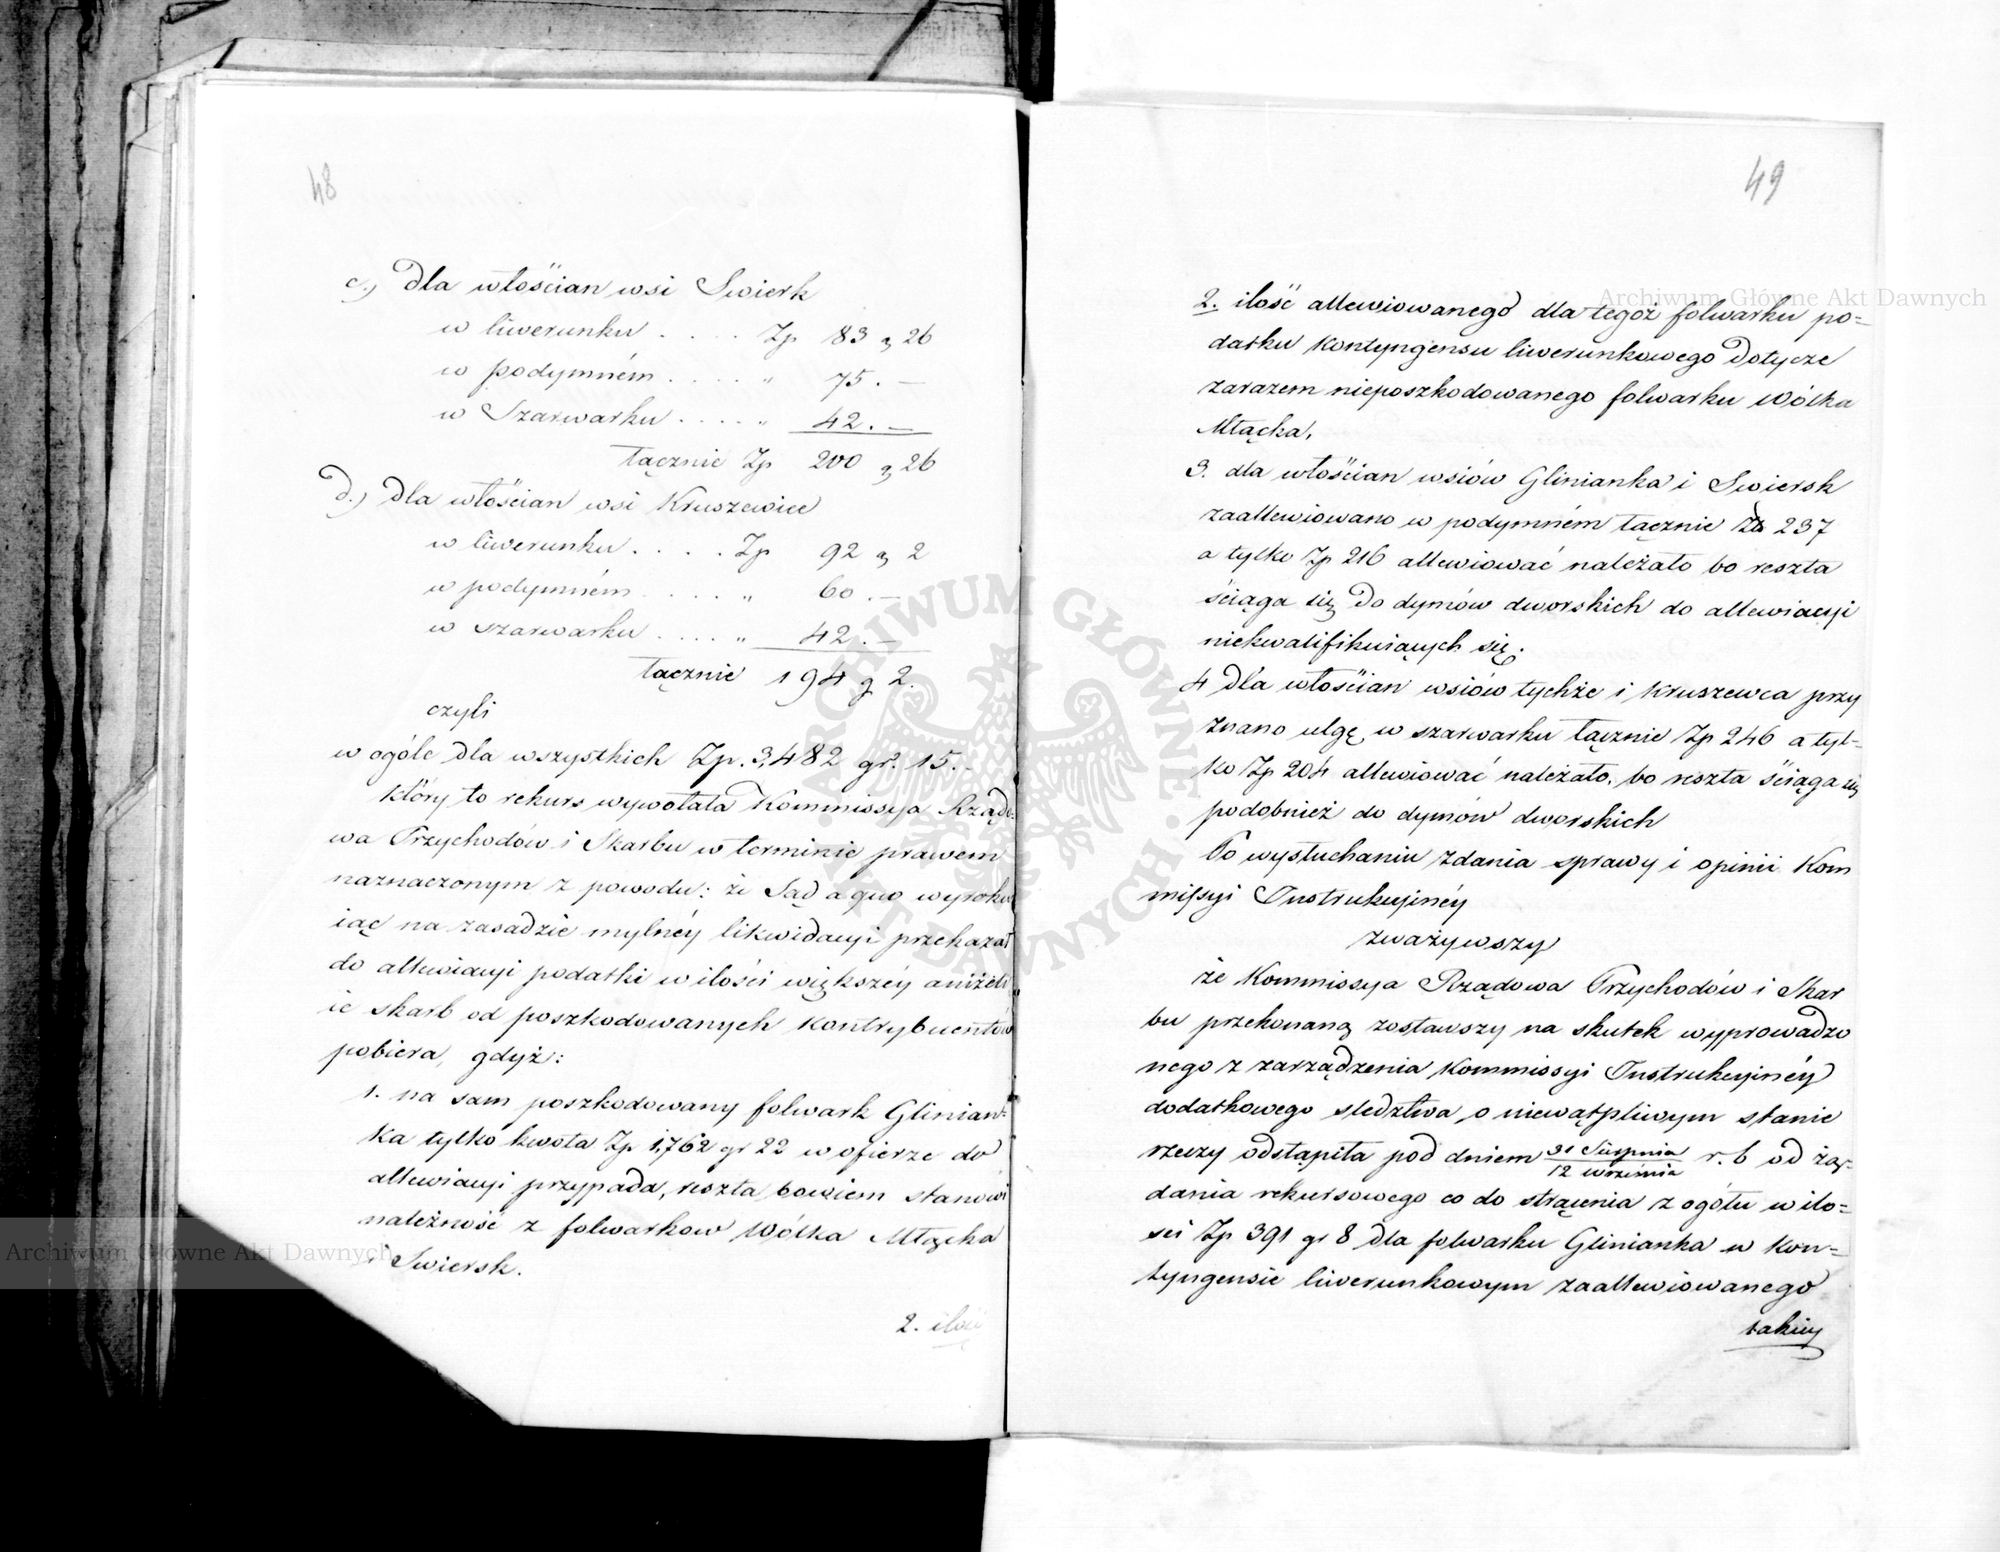 48
c.) dla włościan wsi Swierk
w liwerunku . . . . Zp 83 g 26
w podymném . . . . . " 75. —
w Szarwarku . . . . . " 42. —
łącznie Zp 200 g 26
d.) dla włościan wsi Kruszewiec
w liwerunku . . . . Zp 92 g 2
w podymném . . . . . " 60. —
w szarwarku . . . . " 42. —
łącznie 194 g 2.
czyli
w ogóle dla wszystkich Zp. 3,482 gr. 15. -
który to rekurs wywołała Kommissya Rządo=
wa Przychodów i Skarbu w terminie prawem
naznaczonym z powodu: że Sąd a quo wyroku
iąc na zasadzie mylnéy likwidacyi przekazał
do allewiacyi podatki w ilości większéy aniżeli
ie skarb od poszkodowanych kontrybuentów
pobiera, gdyż:
1. na sam poszkodowany folwark Glinian=
ka tylko kwota Zp 1,762 gr 22 w ofierze do
allewiacyi przypada, reszta bowiem stanowi
należność z folwarkow Wólka Młącka
i Swiersk.
2. ilość
49
2. ilość allewiowanego dla tegoż folwarku po=
datku kontyngensu liwerunkowego dotycze
zarazem nieposzkodowanego folwarku Wólka
Młącka,
3. dla włościan wsiów Glinianka i Swiersk
zaallewiowano w podymném łącznie Zł 237
a tylko Zp 216 allewiować należało bo reszta
ściąga się do dymów dworskich do allewiacyi
niekwalifikuiących się.
4 dla włościan wsiów tychże i Kruszewca przy
znano ulgę w szarwarku łącznie Zp 246 a tyl=
ko Zp 204 allewiować należało, bo reszta ściąga się
podobnież do dymów dworskich
Po wysłuchaniu zdania sprawy i opinii Kom
missyi Instrukcyinéy
zważywszy
że Kommissya Rządowa Przychodów i Skar
bu przekonaną zostawszy na skutek wyprowadzo
nego z zarządzenia Kommissyi Instrukcyinéy
dodatkowego sledztwa, o niewątpliwym stanie
rzeczy odstąpiła pod dniem 31 Sierpnia / 12 września r. b od żą=
dania rekursowego co do strącenia z ogółu w ilo=
ści Zp 391 gr 8 dla folwarku Glinianka w kon=
tyngensie liwerunkowym zaallewiowanego
takiey
Archiwum Główne Akt Dawnych
Archiwum Główne Akt Dawnych
ARCHIWUM GŁÓWNE AKT DAWNYCH